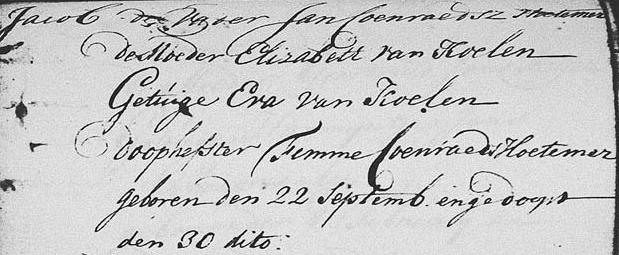 Jacob de Vader Jan Coenraedsz Hoetemer
de Moeder Elizabett van Koelen
Getuige Eva van Koelen
doophefster Femme Coenraeds Hoetemer
geboren den 22 Septemb. en gedoopt
den 30 dito.